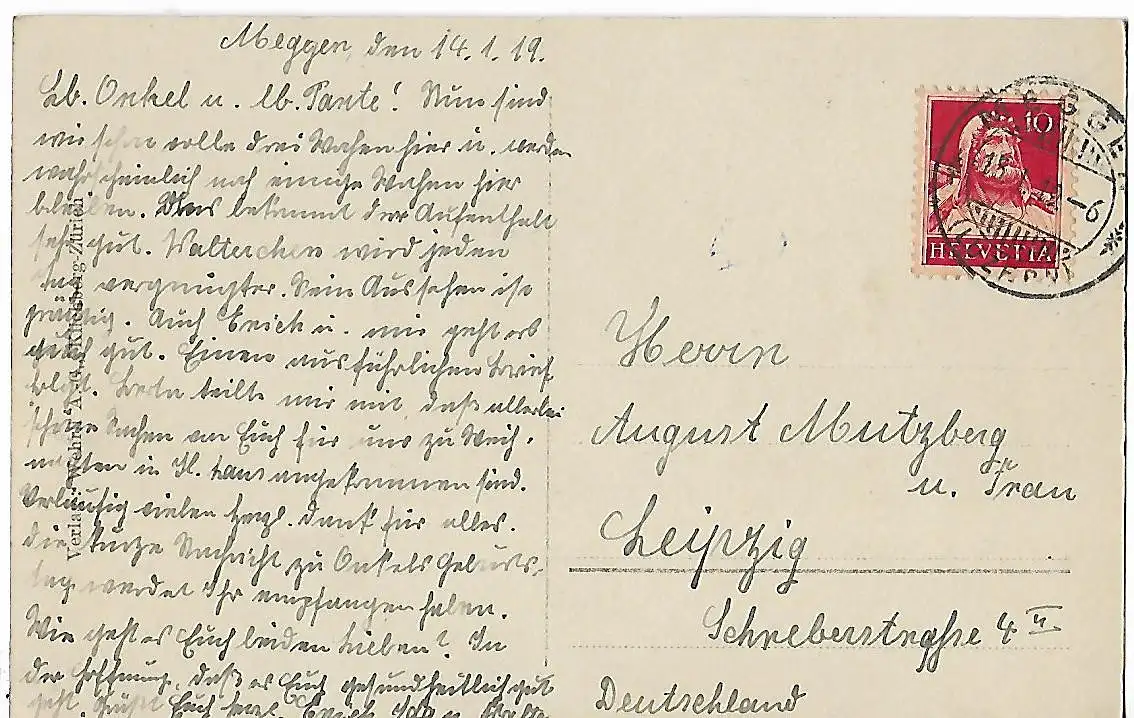 Meggen, den 14.1.19.
Lb. Onkel u. lb. Tante! Nun sind
wir schon volle drei Wochen hier u. werden
wahrscheinlich noch einige Wochen hier
bleiben. Uns bekommt der Aufenthalt
sehr gut. Walterchen wird jeden
Tag vergnügter. Sein Aussehen ist
prächtig. Auch Erich u. mir geht es
gut. Einen ausführlichen Brief
folgt. teilte mir mit, daß allerlei
schöne Sachen von Euch für uns zu Weih-
nachten in angekommen sind.
Vorläufig vielen herzl. Dank für alles.
Die kurze Nachricht zu Onkels Geburts-
tag werdet Ihr empfangen haben.
Wie geht es Euch beiden Lieben? In
der Hoffnung, daß es Euch gesundheitlich gut
geht, grüßt Euch herzl. Erich, u.
Verlag „Wehrli“ A.-G., Kilchberg-Zürich
10
HELVETIA
MEGGEN
(LUZERN)
Herrn
August Mutzberg
u. Frau
Leipzig
Schreberstrasse 4 II
Deutschland